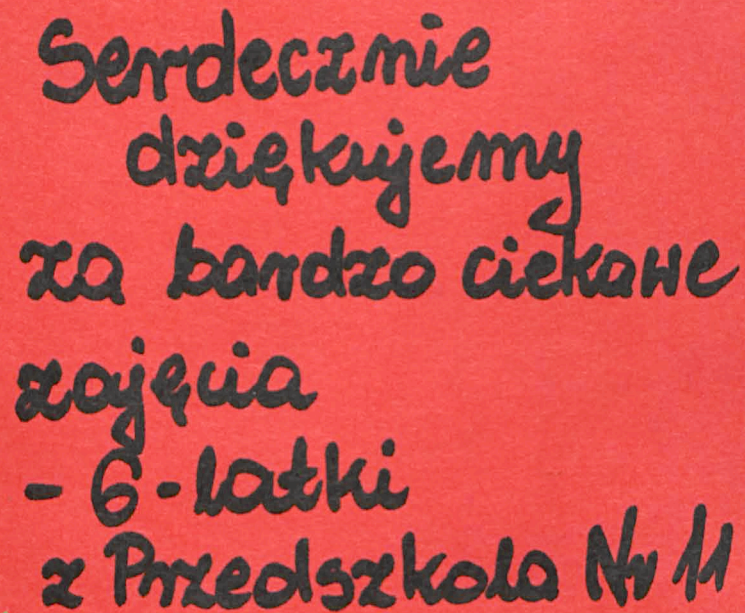 Serdecznie
dziękujemy
za bardzo ciekawe
zajęcia
- 6-latki
z Przedszkola Nr 11